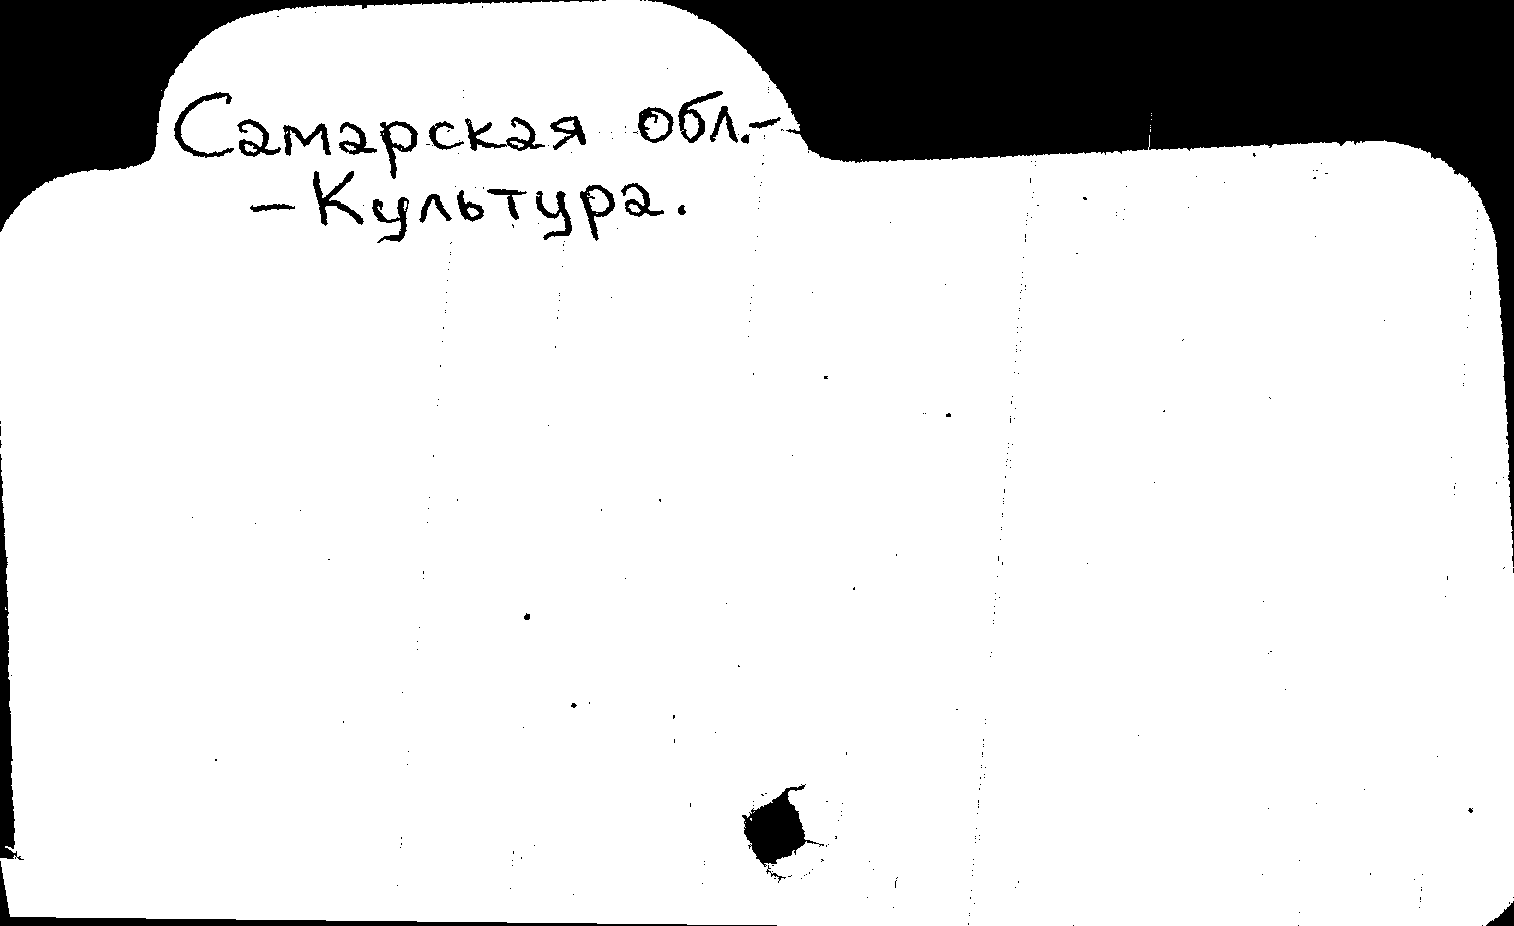 Самарская обл.-
- Культура.